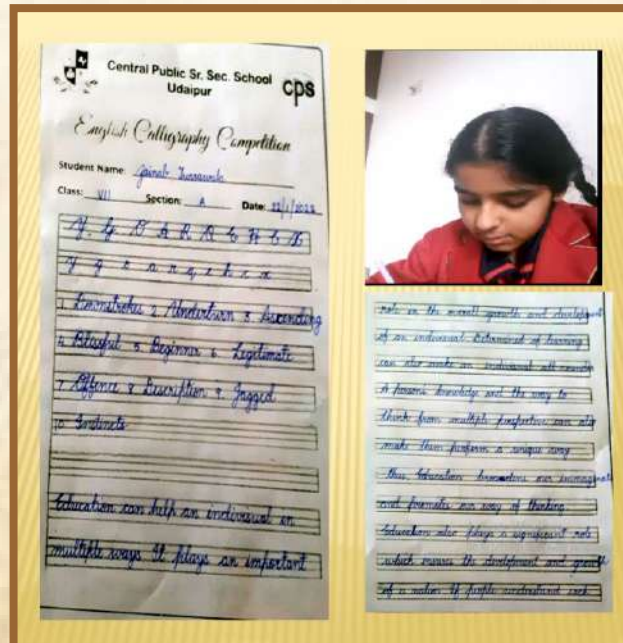 Central Public Sr. Sec. School
Udaipur
cps
English Calligraphy Competition
Student Name: Jainab
Class: VII Section: A Date: 22/1/2022
1. Downstrokes 2. Understurn 3. Ascending
4. Blissful 5. Beginner 6. Legitimate
7. Offence 8. Description 9. Jagged
10. Instincts
Education can help an individual in
multiple ways. It plays an important
role in the overall growth and development
of an individual. Determined of learning
can also make an individual
A persons knowledge and the way to
think from multiple perspective can also
make them perform a unique way
thus, Education our
and promotes our way of thinking
Education also plays a significant role
which means the development and growth
of a nation. If people understand each